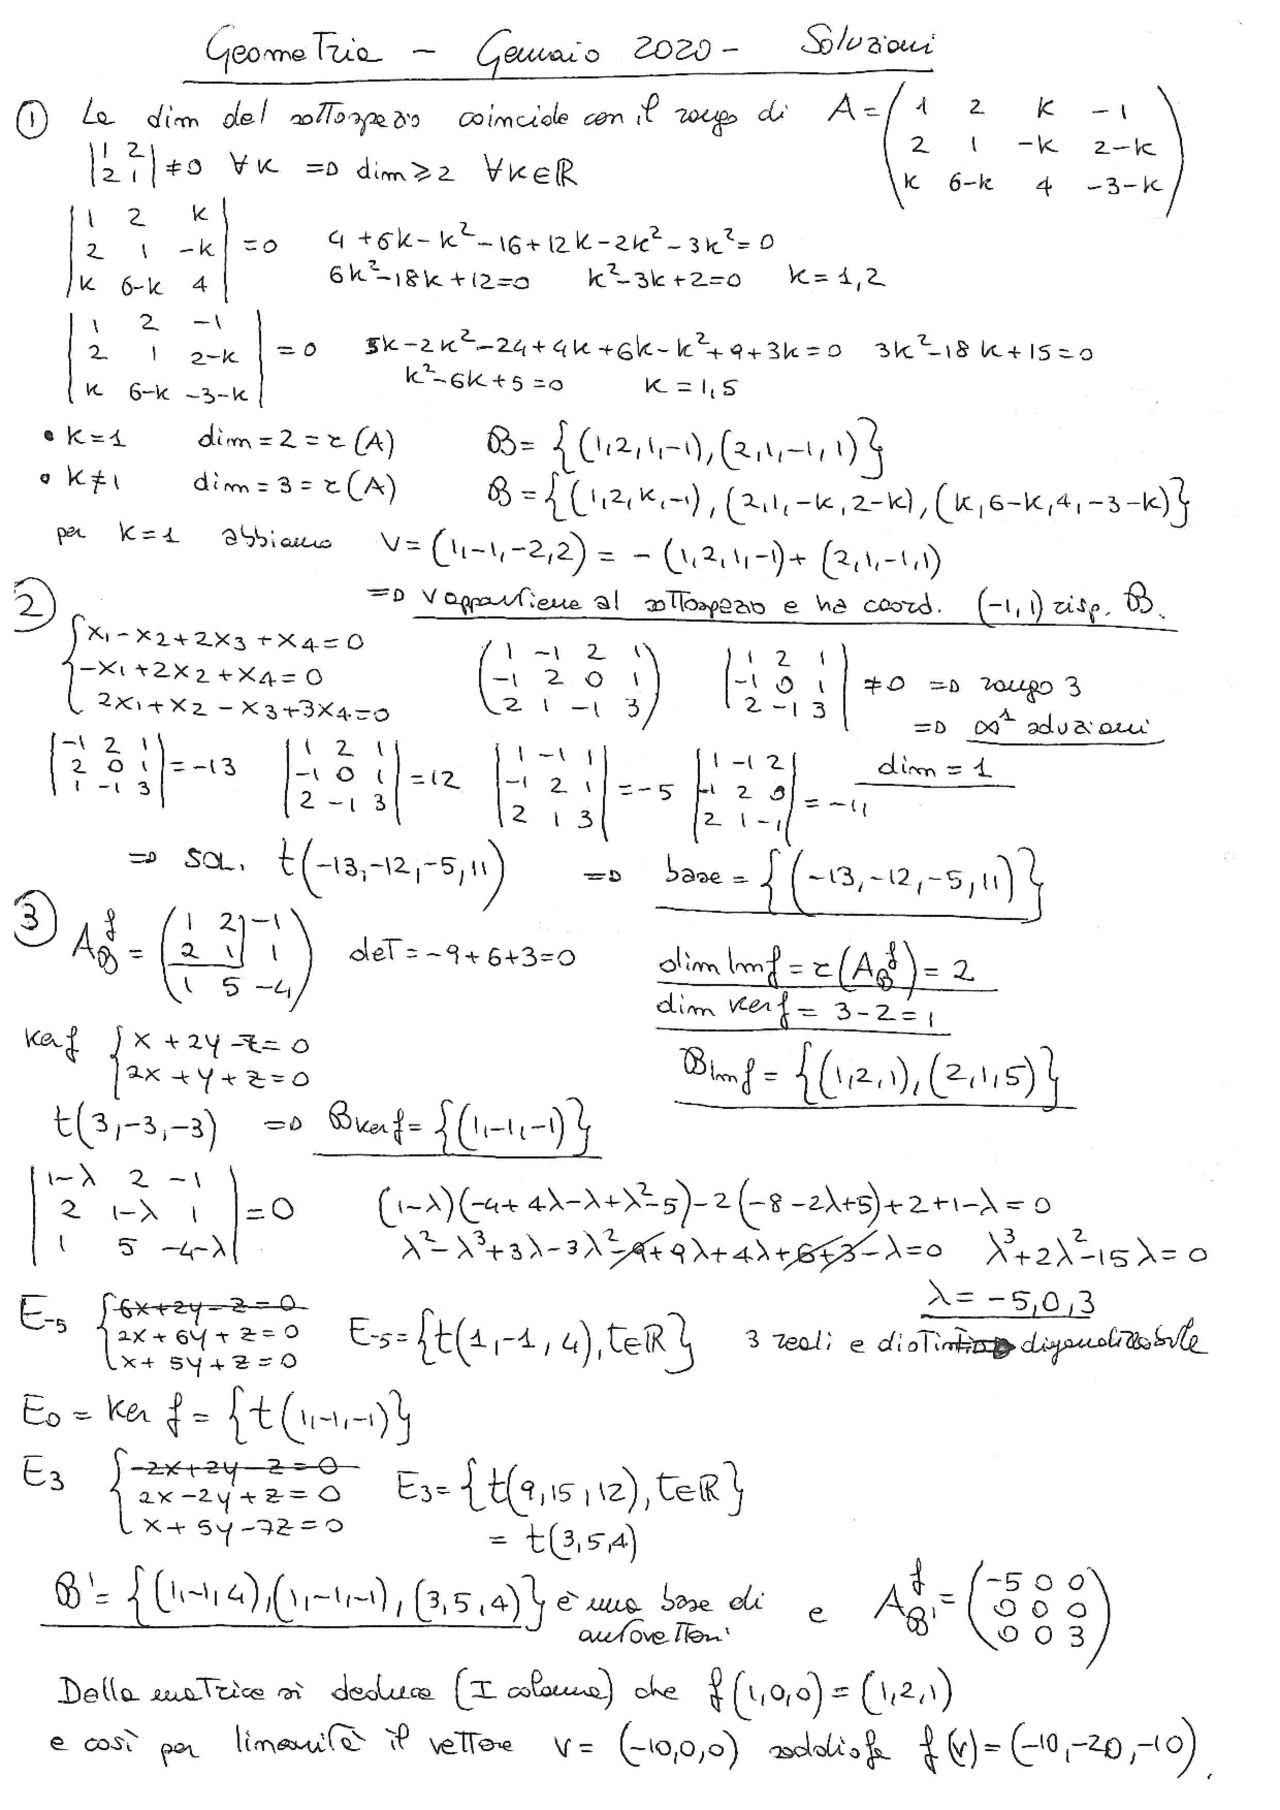 Geometria - Gennaio 2020 - Soluzioni
① La dim del sottospazio coincide con il rango di A = (1 2 k -1 / 2 1 -k 2-k / k 6-k 4 -3-k)
|1 2 / 2 1| ≠ 0 ∀k ⇒ dim ⩾ 2 ∀k∈ℝ
|1 2 k / 2 1 -k / k 6-k 4| = 0 4+6k-k²-16+12k-2k²-3k²=0
6k²-18k+12=0 k²-3k+2=0 k=1,2
|1 2 -1 / 2 1 2-k / k 6-k -3-k| = 0 3k-2k²-24+4k+6k-k²+9+3k=0 3k²-18k+15=0
k²-6k+5=0 k=1,5
• k=1 dim=2=r(A) B={(1,2,1,-1),(2,1,-1,1)}
• k≠1 dim=3=r(A) B={(1,2,k,-1),(2,1,-k,2-k),(k,6-k,4,-3-k)}
per k=1 abbiamo v=(1,-1,-2,2)=-(1,2,1,-1)+(2,1,-1,1)
⇒ v appartiene al sottospazio e ha coord. (-1,1) risp. B.
② {x1-x2+2x3+x4=0 / -x1+2x2+x4=0 / 2x1+x2-x3+3x4=0 (1 -1 2 1 / -1 2 0 1 / 2 1 -1 3) |1 2 1 / -1 0 1 / 2 -1 3| ≠0 ⇒ rango 3
⇒ ∞¹ soluzioni
|-1 2 1 / 2 0 1 / 1 -1 3| = -13 |1 2 1 / -1 0 1 / 2 -1 3| = 12 |1 -1 1 / -1 2 1 / 2 1 3| = -5 |1 -1 2 / -1 2 0 / 2 1 -1| = -11 dim=1
⇒ SOL. t(-13,-12,-5,11) ⇒ base={(-13,-12,-5,11)}
③ A_B^f = (1 2 -1 / 2 1 1 / 1 5 -4) det=-9+6+3=0 dim Imf=r(A_B^f)=2
dim kerf=3-2=1
kerf {x+2y-z=0 / 2x+y+z=0 B Imf={(1,2,1),(2,1,5)}
t(3,-3,-3) ⇒ B kerf={(1,-1,-1)}
|1-λ 2 -1 / 2 1-λ 1 / 1 5 -4-λ| = 0 (1-λ)(-4+4λ-λ+λ²-5)-2(-8-2λ+5)+2+1-λ=0
λ²-λ³+3λ-3λ²-9+9λ+4λ+6+3-λ=0 λ³+2λ²-15λ=0
λ=-5,0,3
E-5 {6x+2y-z=0 / 2x+6y+z=0 / x+5y+z=0 E-5={t(1,-1,4),t∈ℝ} 3 reali e distinti ⇒ diagonalizzabile
E0=Ker f={t(1,-1,-1)}
E3 {-2x+2y-z=0 / 2x-2y+z=0 / x+5y-7z=0 E3={t(9,15,12),t∈ℝ}
=t(3,5,4)
B'={(1,-1,4),(1,-1,-1),(3,5,4)} è una base di autovettori e A_B'^f = (-5 0 0 / 0 0 0 / 0 0 3)
Dalla matrice si deduce (I colonna) che f(1,0,0)=(1,2,1)
e così per linearità il vettore v=(-10,0,0) soddisfa f(v)=(-10,-20,-10).